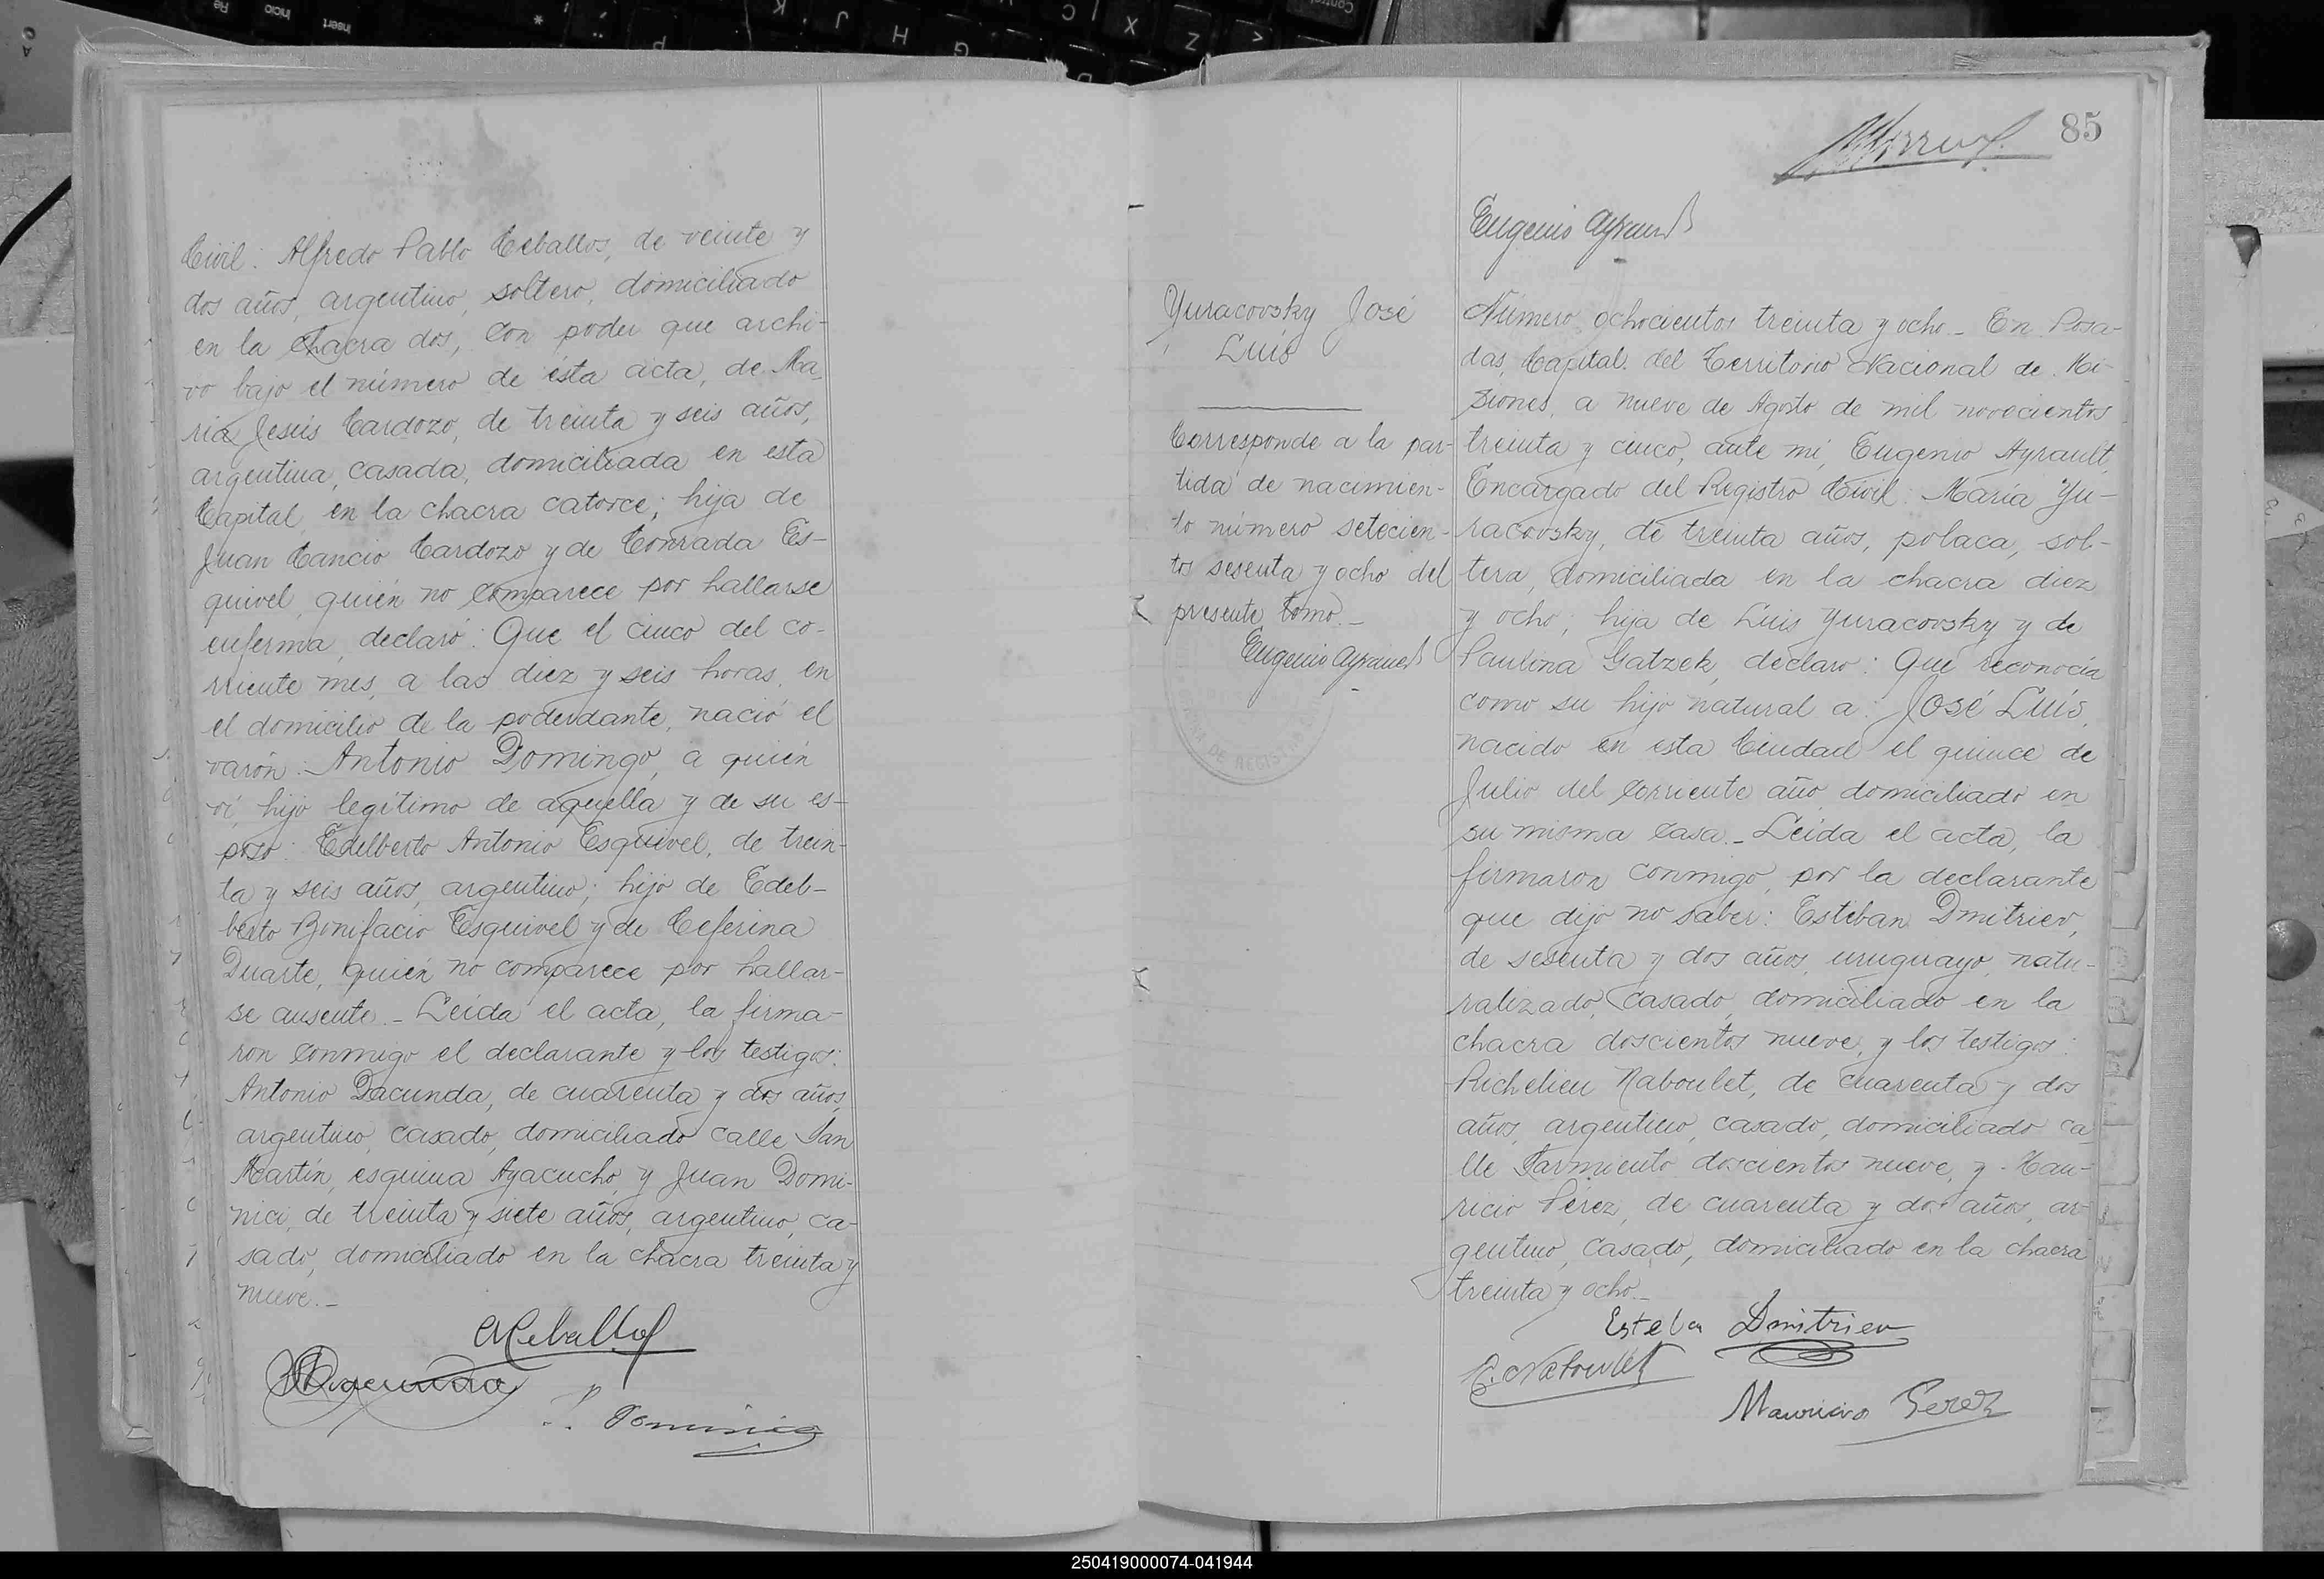 Civil: Alfredo Pablo Ceballos, de veinte y
dos años, argentino, soltero, domiciliado
en la chacra dos, con poder que archi-
vo bajo el número de ésta acta, de Ma-
ría Jesús Cardozo, de treinta y seis años,
argentina, casada, domiciliada en esta
Capital, en la chacra catorce; hija de
Juan Cancio Cardozo y de Conrada Es-
quivel, quién no comparece por hallarse
enferma, declaró: Que el cinco del co-
rriente mes, a las diez y seis horas, en
el domicilio de la poderdante, nació el
varón: Antonio Domingo, a quién
ví, hijo legítimo de aquella y de su es-
poso: Edelberto Antonio Esquivel, de trein-
ta y seis años, argentino; hijo de Edel-
berto Bonifacio Esquivel y de Ceferina
Duarte, quién no comparece por hallar-
se ausente.- Leída el acta, la firma-
ron conmigo el declarante y los testigos:
Antonio Dacunda, de cuarenta y dos años,
argentino, casado, domiciliado calle San
Martín, esquina Ayacucho, y Juan Domi-
nici, de treinta y siete años, argentino, ca-
sado, domiciliado en la chacra treinta y
nueve.-
ACeballos
J. Dominici
85
Eugenio Ayrault
Yuracovsky José
Luís
Corresponde a la par-
tida de nacimien-
to número setecien-
tos sesenta y ocho del
presente tomo.-
Eugenio Ayrault
DE REGIS
Número ochocientos treinta y ocho.- En Posa-
das, Capital del Territorio Nacional de Mi-
siones, a nueve de Agosto de mil novecientos
treinta y cinco, ante mí, Eugenio Ayrault,
Encargado del Registro Civil: María Yu-
racovsky, de treinta años, polaca, sol-
tera, domiciliada en la chacra diez
y ocho; hija de Luis Yuracovsky y de
Paulina Gatzek, declaro: Que reconocía
como su hijo natural a: José Luís,
nacido en esta Ciudad el quince de
Julio del corriente año, domiciliado en
su misma casa.- Leída el acta, la
firmaron conmigo, por la declarante
que dijo no saber: Esteban Dmitriev,
de sesenta y dos años, uruguayo, natu-
ralizado, casado, domiciliado en la
chacra doscientos nueve, y los testigos:
Richelieu Naboulet, de cuarenta y dos
años, argentino, casado, domiciliado ca-
lle Sarmiento doscientos nueve, y Mau-
ricio Pérez, de cuarenta y dos años, ar-
gentino, casado, domiciliado en la chacra
treinta y ocho.-
Esteban Dmitriev
R. Naboulet
Mauricio Perez
250419000074-041944